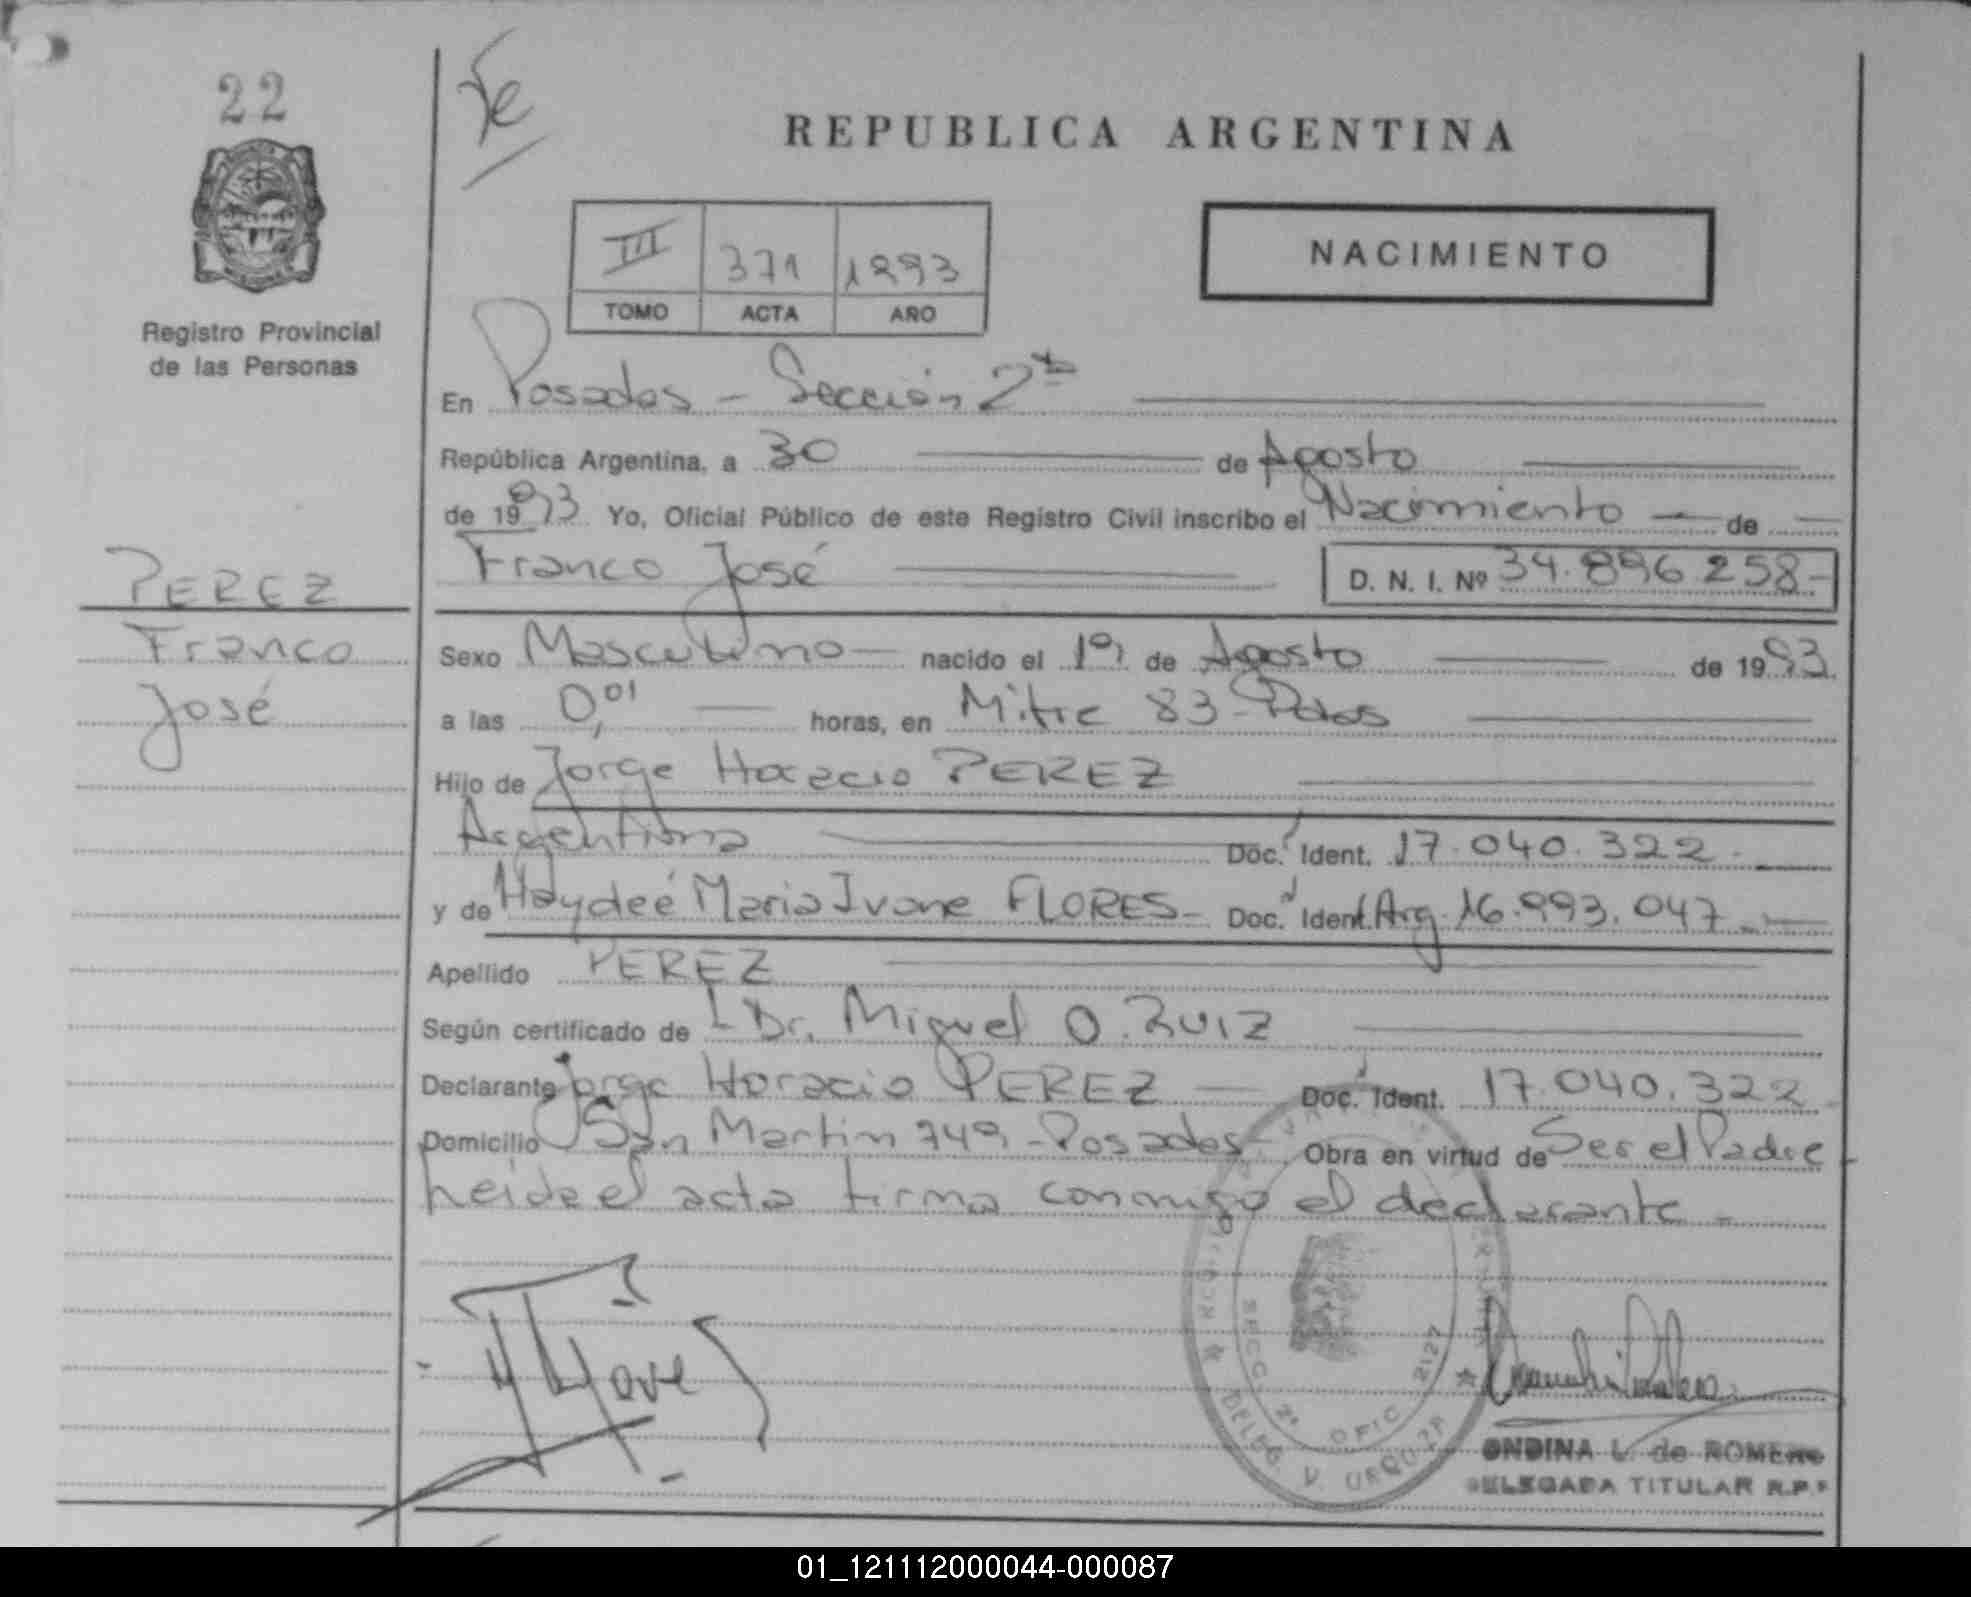 22
Fe
REPUBLICA ARGENTINA
III 371 1993
TOMO ACTA AÑO
NACIMIENTO
Registro Provincial
de las Personas
En Posadas - Sección 2ª
República Argentina, a 30 de Agosto
de 1993 Yo, Oficial Público de este Registro Civil inscribo el Nacimiento de
Franco José D. N. I. Nº 34.896.258-
PEREZ
Franco
José
Sexo Masculino nacido el 1º de Agosto de 1993.
a las 0,01 horas, en Mitre 83 - Pdas
Hijo de Jorge Horacio PEREZ
Argentina Doc. Ident. 17.040.322
y de Haydeé Maria Ivone FLORES - Doc. Ident. Arg. 16.993.047
Apellido PEREZ
Según certificado de Dr. Miguel O. Ruiz
Declarante Jorge Horacio PEREZ Doc. Ident. 17.040.322
Domicilio San Martin 749 - Posadas - Obra en virtud de Ser el Padre
heida el acta firma conmigo el declarante -
SECC. 2ª OFIC 2127
DELEG. V. URQUIZA
ONDINA L. de ROMERO
DELEGADA TITULAR R.P.P
01_121112000044-000087